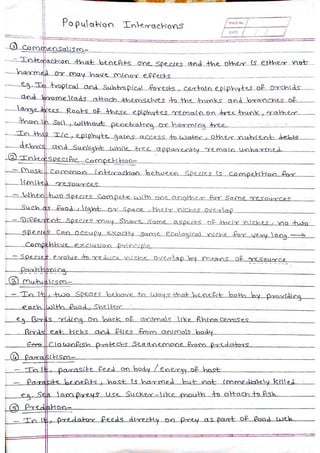 Population Interactions
PAGE No.
DATE
① Commensalism-
- Interaction that benefits one species and the other is either not
harmed or may have minor effects
eg. In tropical and Subtropical forests, certain epiphytes of orchids
and bromeliads attach themselves to the trunks and branches of
large trees. Roots of these epiphytes remain on tree trunk, rather
than in Soil, without penetrating or harming tree.
In this I/c, epiphyte gains access to water, other nutrient debris
debris and sunlight while tree apparently remain unharmed
② Interspecific competition-
- Most common interaction between Species is competition for
limited resources
- When two species Compete with one another for same resources
Such as food, light or space, their niches overlap
- Different species may Share Some aspects of their niches, no two
species can occupy exactly same Ecological niche for very long →
Competitive exclusion principle
- Species evolve to reduce niche overlap by means of resource
partitioning
③ Mutualism-
- In it, two Species behave in ways that benefit both by providing
each with food, Shelter
eg. Birds riding on back of animals like Rhinoceroses.
Birds eat ticks and flies from animals body
Clownfish protects Seaanemone from predators.
④ Parasitism-
- In it, parasite feed on body / energy of host
- Parasite benefits, host is harmed but not immediately killed
eg. Sea lampreys use Sucker-like mouth to attach to fish
⑤ Predation-
- In it, predator feeds directly on prey as part of food web